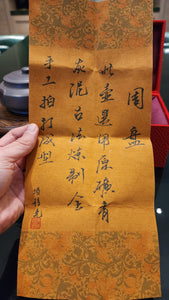 周盘
此壶选用原矿青
灰泥古法炼制全
手工拍打成型